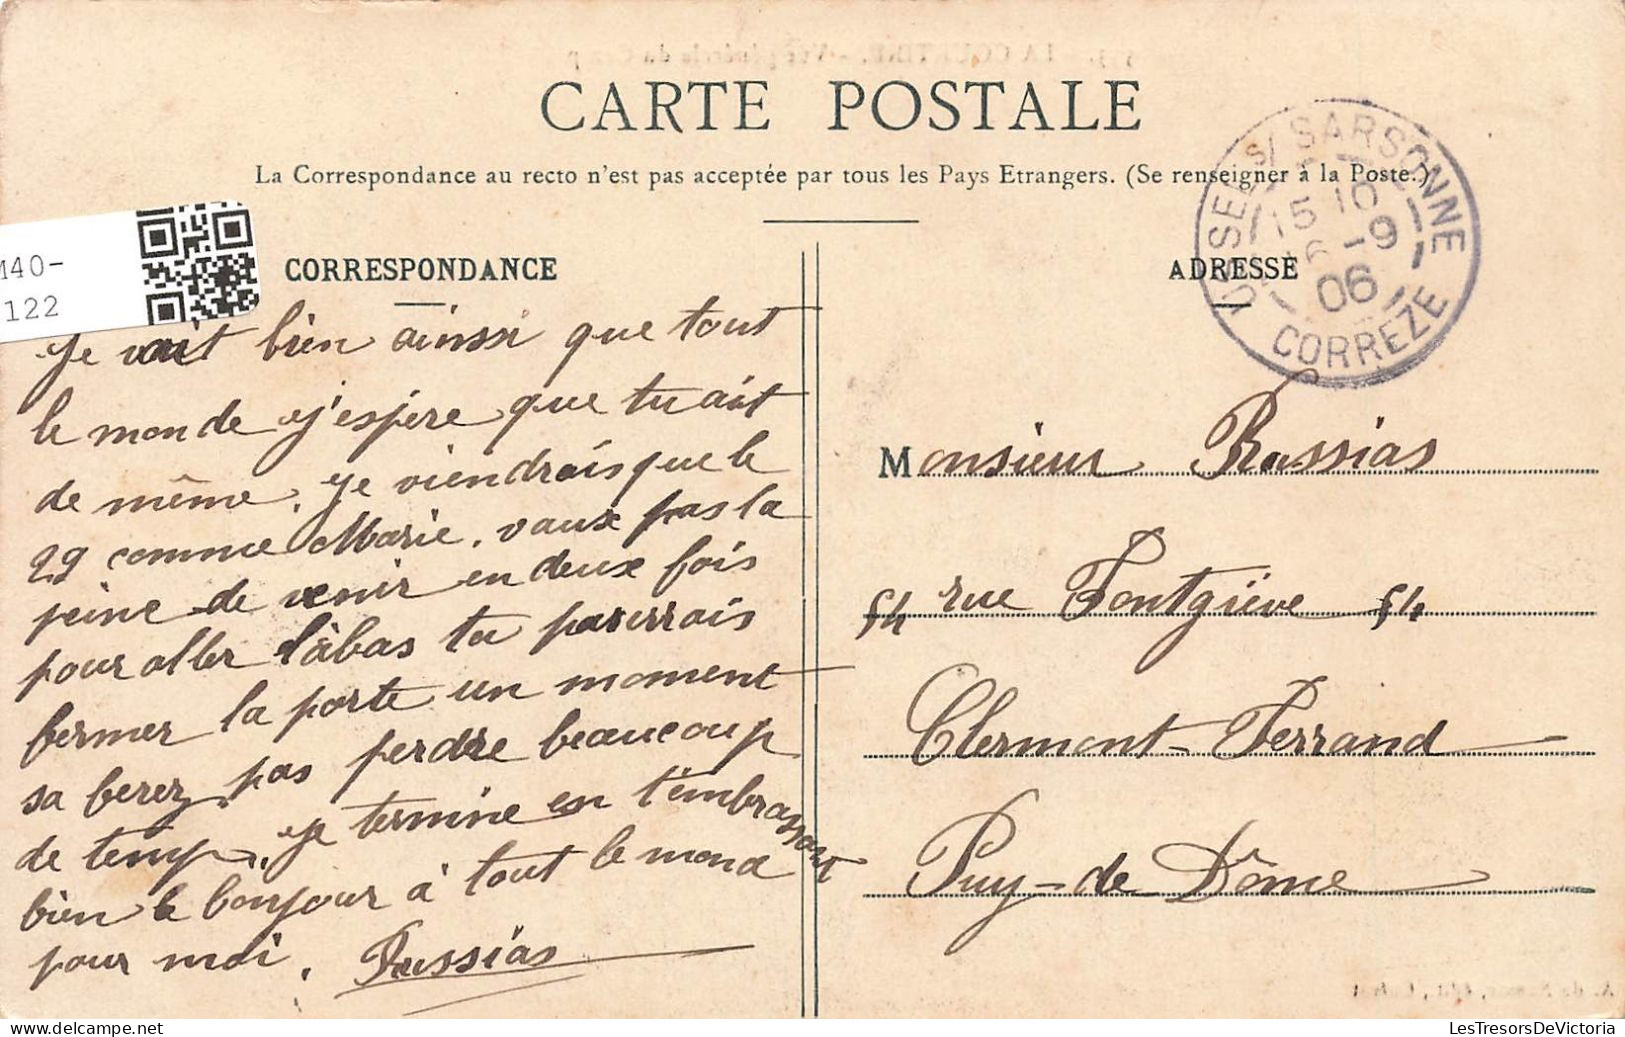 CARTE POSTALE
La Correspondance au recto n'est pas acceptée par tous les Pays Etrangers. (Se renseigner à la Poste.)
M40-
122
CORRESPONDANCE
Je vait bien ainssi que tout
le monde j'espère que tu ait
de même. je viendrais que le
29 comme Marie. vaux pas la
peine de venir en deux fois
pour aller làbas tu pourrais
fermer la porte un moment
sa ferez pas perdre beaucoup
de temp. je termine en t'embrassant
bien le bonjour à tout le monde
pour moi. Russias
ADRESSE
USSEL S/ SARSONNE
15 10
6 -9
06
CORREZE
Monsieur Russias
54 rue Fontgiève 54
Clermont-Ferrand
Puy-de Dôme
LesTresorsDeVictoria